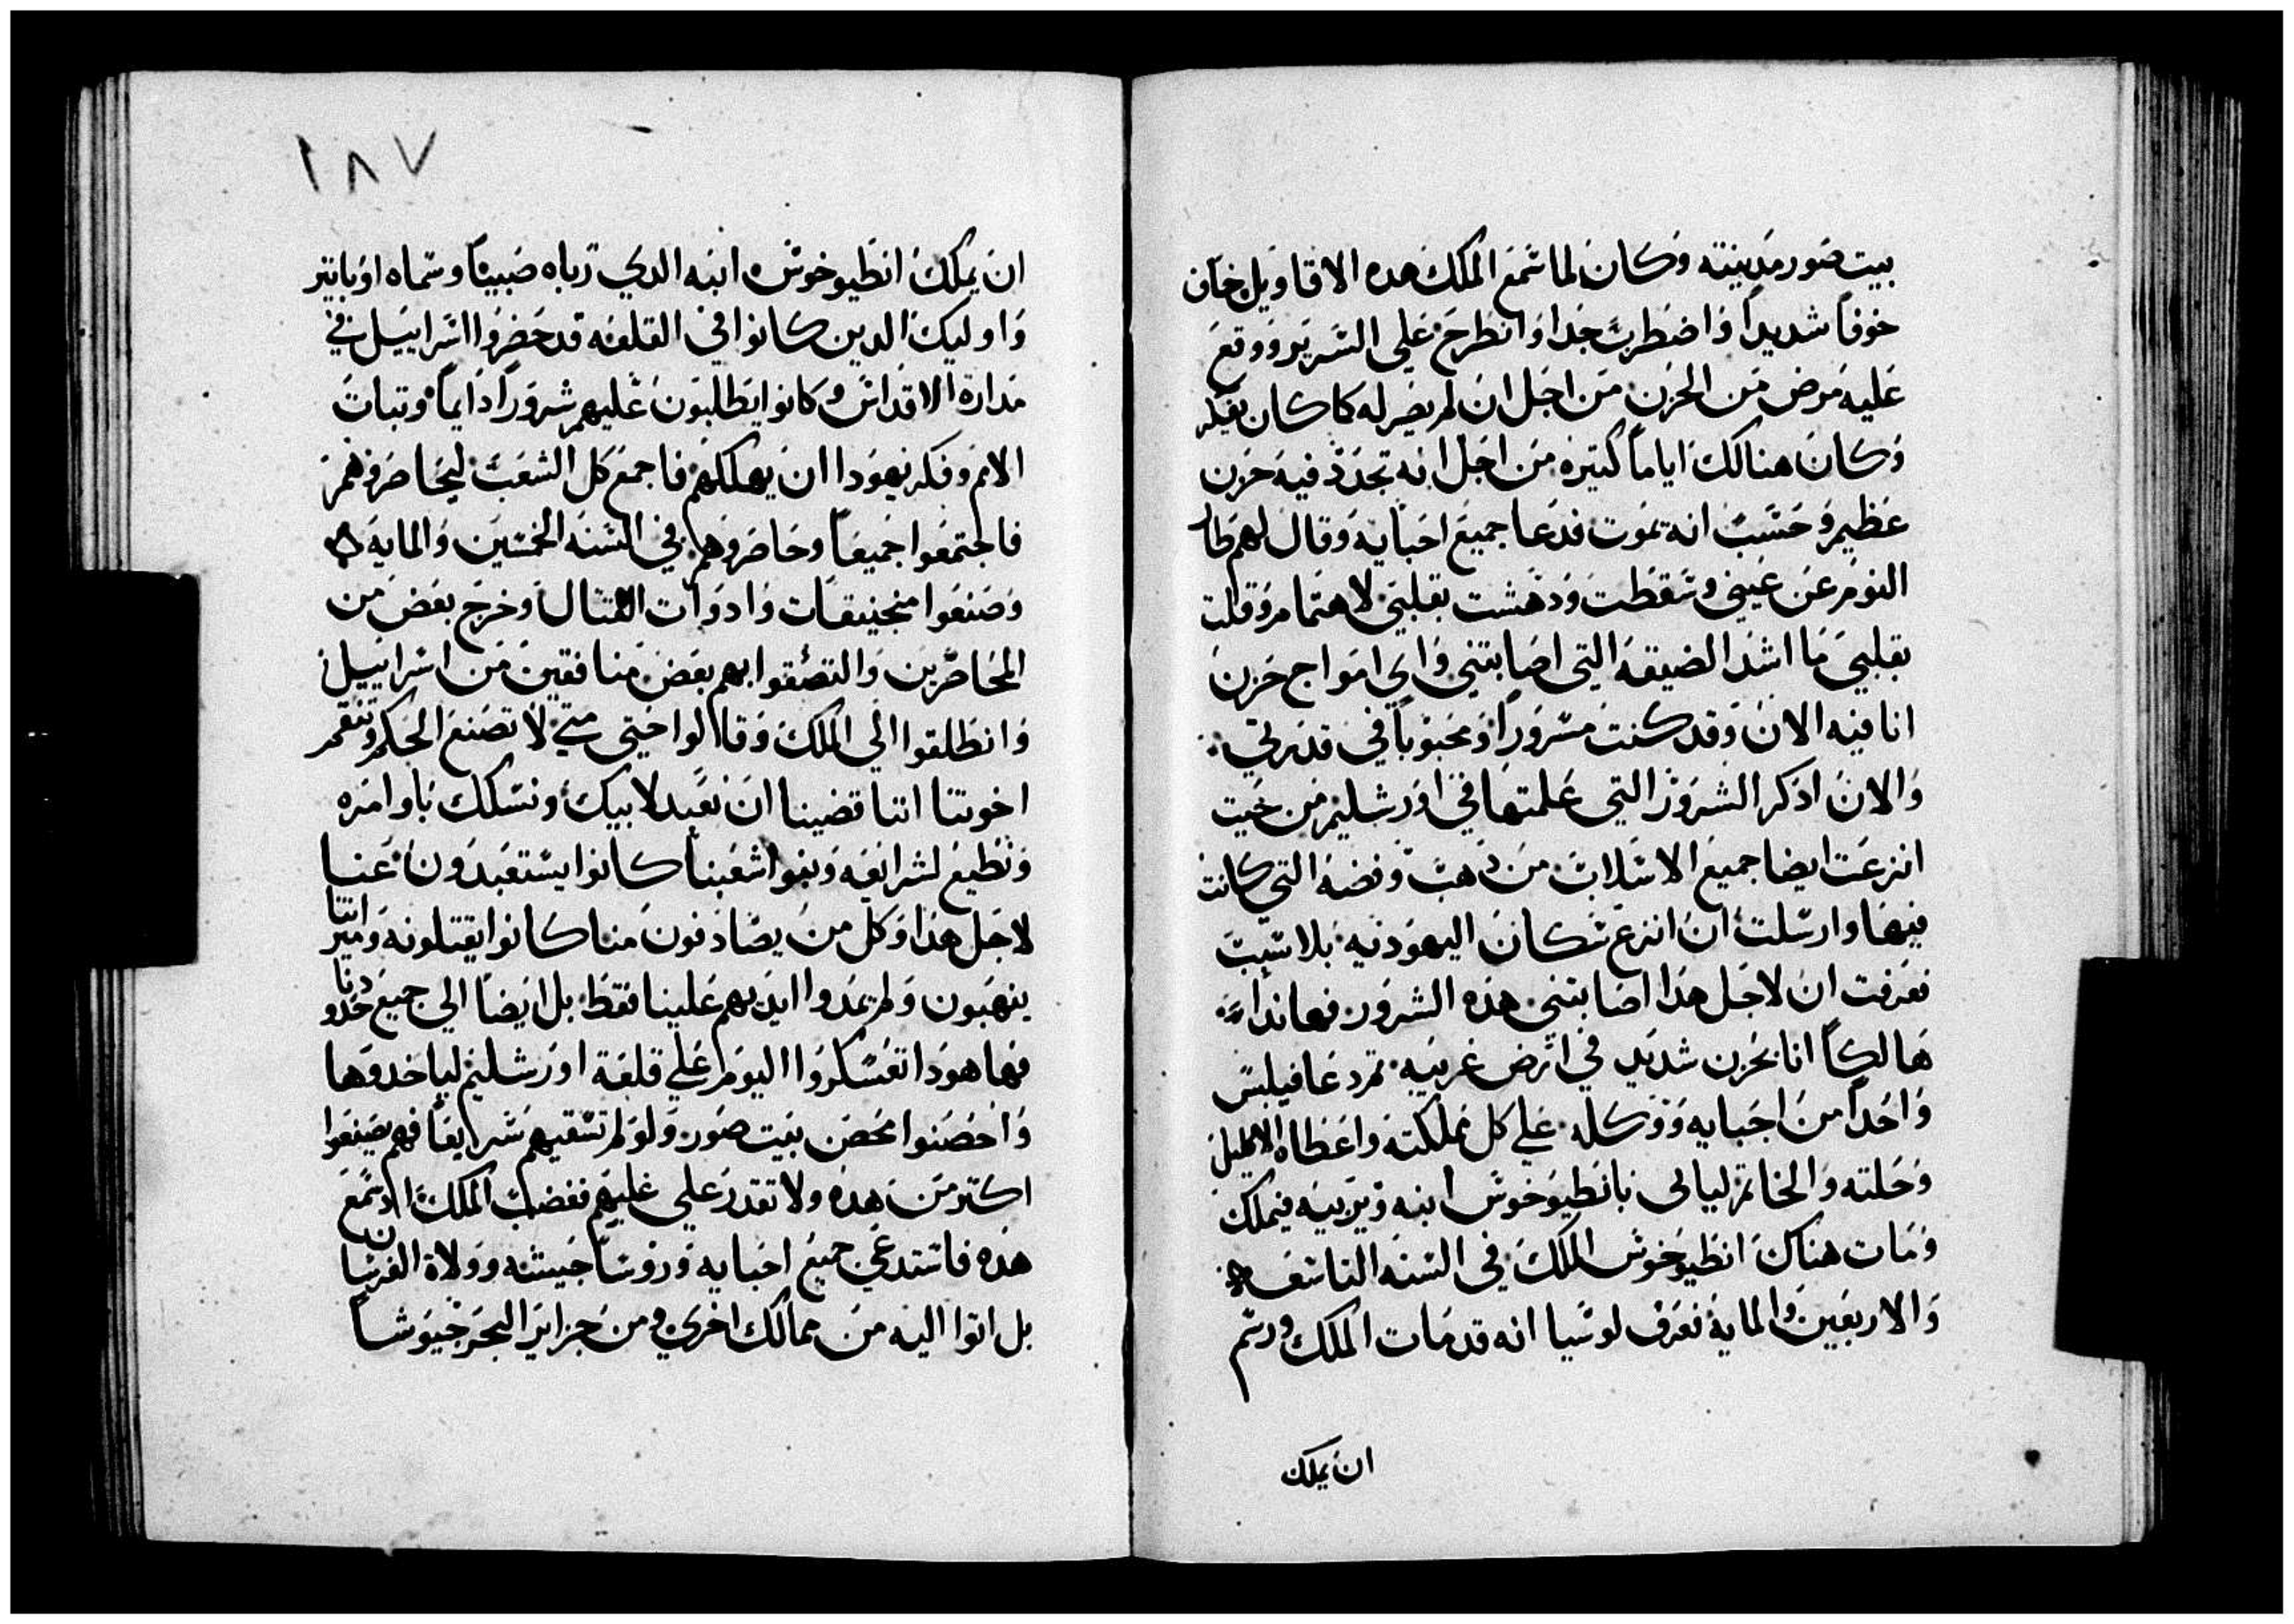 بيت صور مدينته وكان لما سمع الملك هده الاقاويل خاف
خوفاً شديداً واضطرب جدا وانطرح علي السرير ووقع
عليه مرض من الحزن من اجل ان لم يصر له كما كان يفكر
وكان هنالك اياماً كتيره من اجل انه تجدد فيه حزن
عظيم وحسب انه يموت فدعا جميع احبايه وقال لهم طار
النوم عن عيني وسقطت ودهشت بقلبي لاهتمام وقلت
بقلبي ما اشد الضيقه التي اصابتني واي امواج حزن
انا فيه الان وقد كنت مسروراً ومحبوباً في قدرتي
والان ادكر الشرور التي عملتها في اورشليم من حيت
انزعت ايضا جميع الاسلاب من دهب وفضه التي كانت
فيها وارسلت ان انزع سكان اليهوديه بلا سبب
فعرفت ان لاجل هدا اصابتني هده الشرور فهاندا
هالكاً انا بحزن شديد في ارض غريبه تم دعا فيلبس
واحداً من احبايه ووكله علي كل مملكته واعطاه الاكليل
وحلته والخاتم ليالى بانطيوخوس ابنه ويربيه فيملك
ومات هناك انطيوخوس الملك في السنه التاسعه
والاربعين والمايه فعرف لوسيا انه قد مات الملك ورسم
ان يملك
١٨٧
ان يملك انطيوخوس ابنه الدي رباه صبياً وسماه اوباتير
واوليك الدين كانوا في القلعه قد حضروا اسراييل في
مدارة الاقداس وكانوا يطلبون عليهم شروراً دايماً وتبات
الامم وفكر يهودا ان يهلكهم فاجمع كل الشعب ليحاصروهم
فاجتمعوا جميعاً وحاصروهم في السنه الخمسين والمايه
وصنعوا منجنيقات وادوات القتال وخرج بعض من
المحاصرين والتصقوا بهم بعض منافقين من اسراييل
وانطلقوا الي الملك وقاالوا حتي متي لا تصنع الحكم وتنقم
اخوتنا اننا قضينا ان نعبد لابيك ونسلك باوامره
ونطيع لشرايعه وبنوا شعبنا كانوا يستعبدون عنا
لاجل هدا وكل من يصادفون منا كانوا يقتلونه وميراتنا
ينهبون ولم يمدوا ايديهم علينا فقط بل ايضاً الي جميع حدودنا
فها هودا تعسكروا اليوم علي قلعة اورشليم لياخدوها
واحصنوا محصن بيت صور ولو لم تسقيهم سرايعاً فهم يصنعوا
اكتر من هده ولا تقدر علي غلبهم فغضب الملك اد سمع
هده فاستدعي جميع احبايه وروسا جيشه وولاة الفرسان
بل اتوا اليه من ممالك اخري ومن جزاير البحر جيوشاً